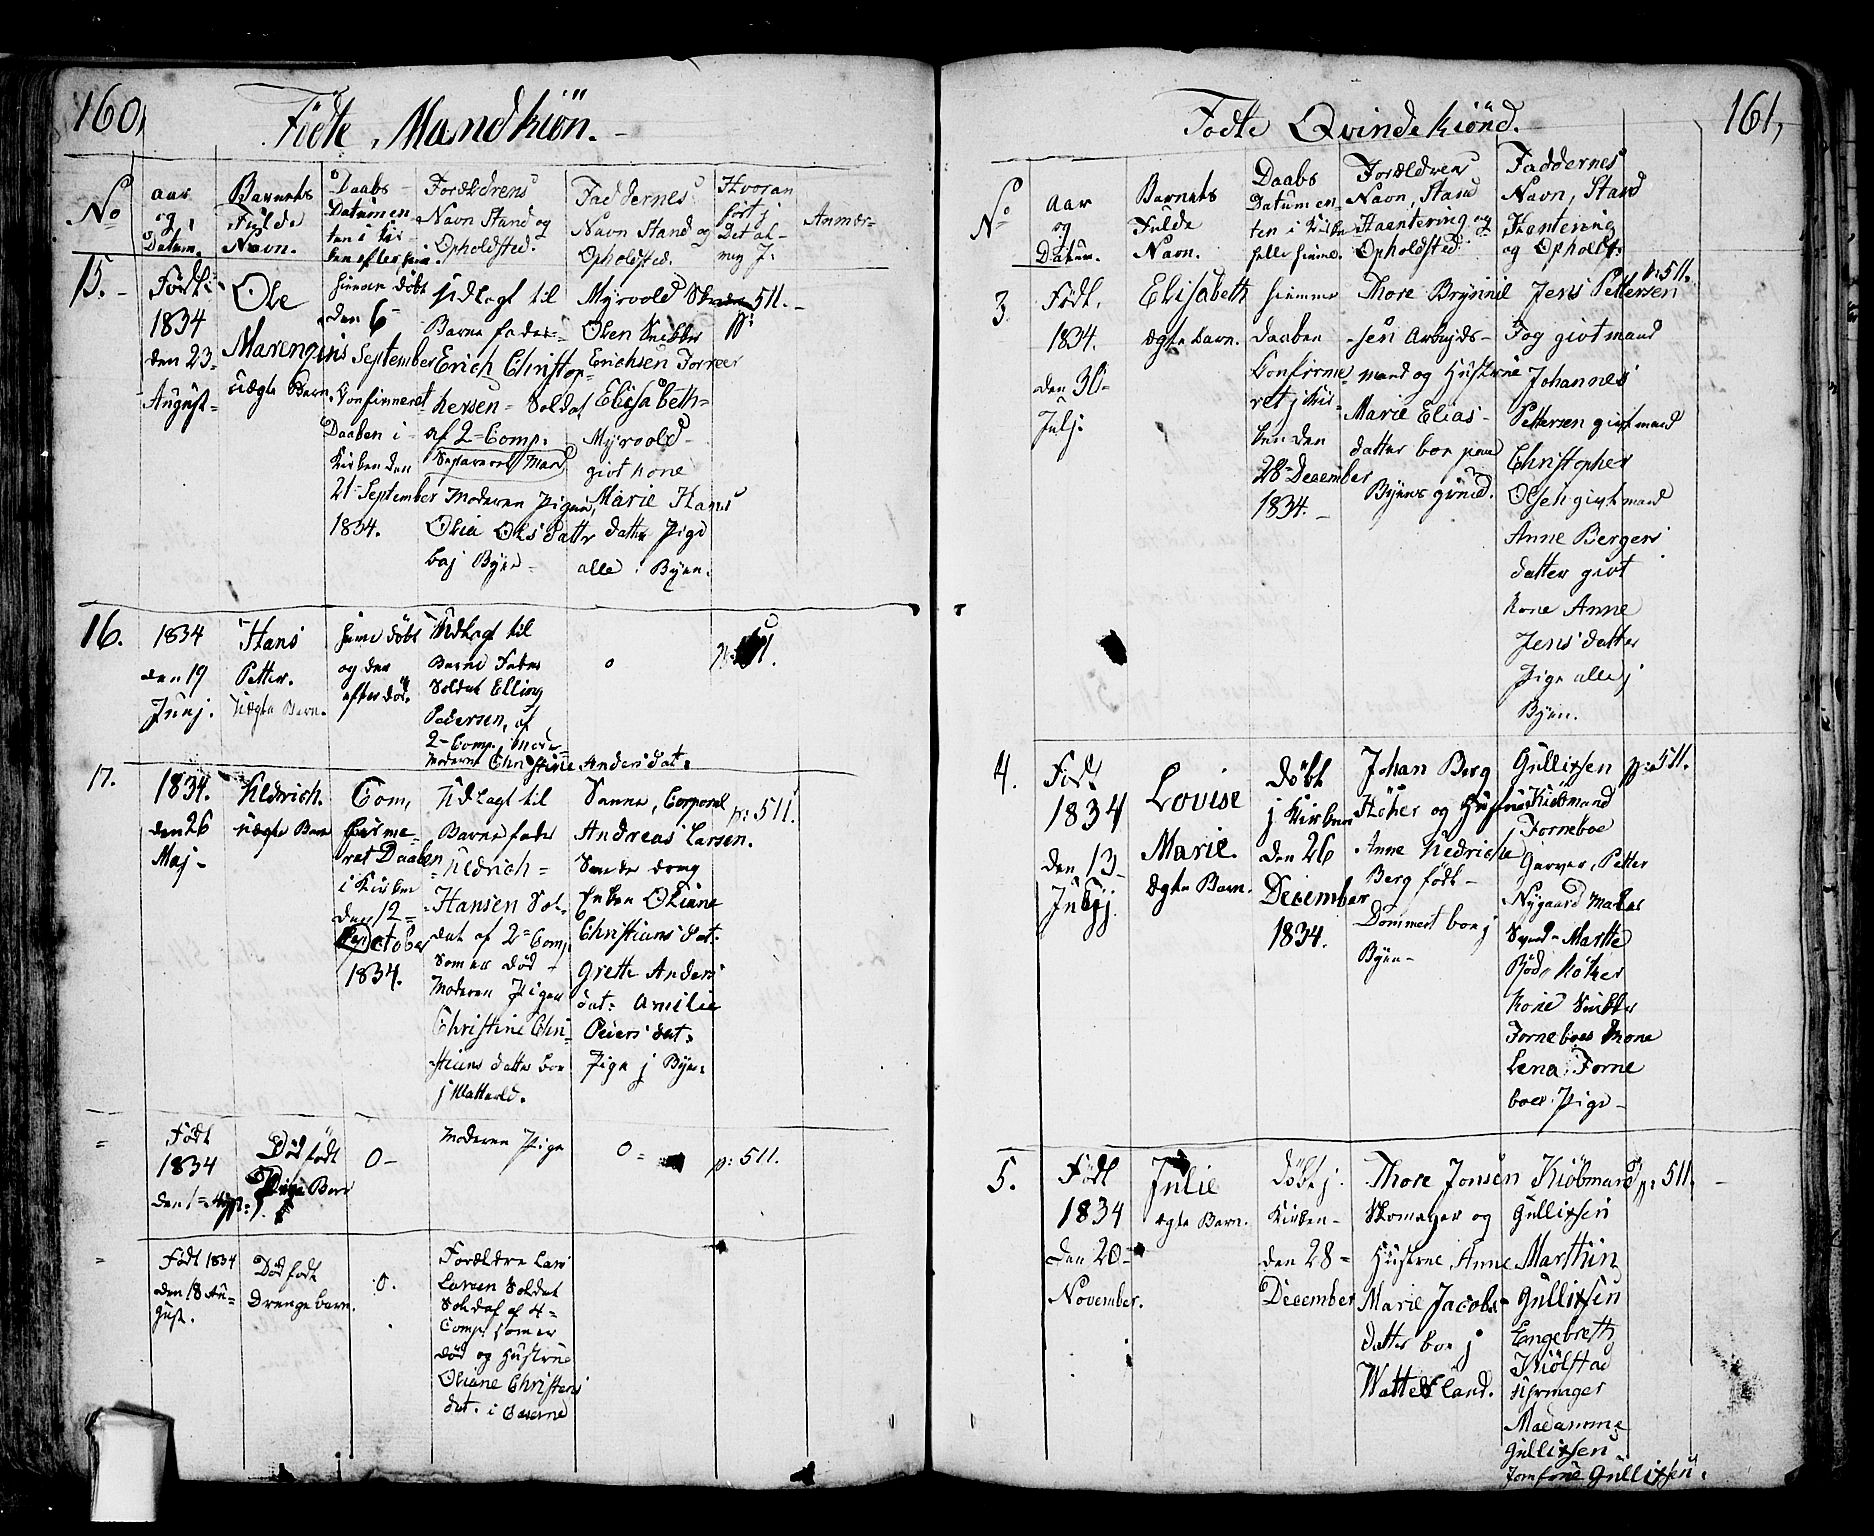 160,
Födte Mandkiön.
No
aar
og
Datum.
Barnets
Fulde
Navn.
Daabs
Datum en
ten i Kir
ken efter
Forældrens
Navn Stand og
Opholdsted.
Faddernes
Navn Stand og
Opholdsted.
Hvoran
ført j
Det al-
mej J:
Anmær-
15.
Födt
1834
den 23
August
Ole
Marenzius
uægte Barn.
hiemme döbt
den 6
September
Confirmeret
Daaben i
Kirken den
21 September
1834.
Udlagt til
Barne fader
Erich Christop-
hersen Soldat
af 2 Comp:
Separeret Mand
Moderen Pigen
Olia Ols Datter
boj Byen
Myrvold
Olen
Erichsen
Elisabeth
Myrvold
givt kone
Marie Hans
datter Pige
alle i Byen.
511.
p:
16.
1834
den 19
Junj.
Hans
Petter.
Uægte Barn.
hiemme döbt
og der
efter död.
Udlagt til
Barne Fader
Soldat Elling
Pedersen, af
2 Comp.
Moderen Christine Anders dat:
o
17.
1834.
den 26
Maj
Uldrich.
uægte Barn
Con,
firme-
ret Daaben
i Kirken
den 12
October
1834.
Udlagt til
Barnefader
Uldrich
Hansen Sol-
dat af 2 Comp
som er död
Moderen Pigen
Christine Chri-
stians datter boe
j Watteld.
Sanne, Corporal
Andreas Larsen.
Enken Oliane
Christians dat.
Grethe Anders
dat: Amilie
Peiers dat:
Pige j Byen:
p: 511.
=
Födt
1834
den 1
Död födt
Pige Barn
0
Moderen Pige
0
p: 511.
=
Födt 1834
den 18 Au-
gust.
Död födt
Drengebarn.
0.
Forældre Lars
Larsen Soldat
Soldat af 4
Comp. som er
död og Hustrue
Oliane Christens
dat. i Caserne
161,
Fødte Qvindekiönd.
No
Aar
og
Datum.
Barnets
Fulde
Navn.
Daabs
Datum en
ten i Kirken
heller hiemme.
Forældren
Navn, Stand
Haantering og
Opholdsted
Faddernes
Navn, Stand
Hantering
og Opholt.
3.
Födt.
1834.
den 30
Julj:
Elisabeth
ægte Barn.
hiemme
Daaben
Confirme-
ret j Kir-
ken den
28 December
1834.
Thore Brynnil
sen Arbeyds-
mand og Hustrue
Marie Elias-
datter boe paa
Byens grund.
Jens Pettersen
Fog givt mand
Johannes
Pettersen givt mand
Christopher
Olsen givt mand
Anne Bergers
datter givt
kone Anne
Jens datter
Pige alle j
Byen.
p: 511.
4.
Födt
1834
den 13
Julj
Lovise
Marie.
ægte Barn.
döbt
j Kirken
den 26
December
1834.
Johan Berg
Höker og Hustrue
Anne Uldriche
Berg födt
Dommert boe j
Byen
Gullixsen
Kiöbmand
j Forneboe
Garver, Petter
Nygaard Maler
Svend Marthe
Röd Höker
Kone
Forneboes Kone
Lena Forne
boes Pige
p: 511.
5.
Födt
1834
den 20
November.
Julie
ægte Barn.
Döbt j
Kirken
den 28
December
Thore Jonsen
Skomager og
Hustrue Anne
Marie Jacobs
datter boe j
Watteland.
Kiöbmand
Gullixsen
Marthin
Gullixsen
Engebreth
Kiölstad
Uhrmager
Madamme
Gullixsen
Jomfrue Gullixsen.
p: 511.